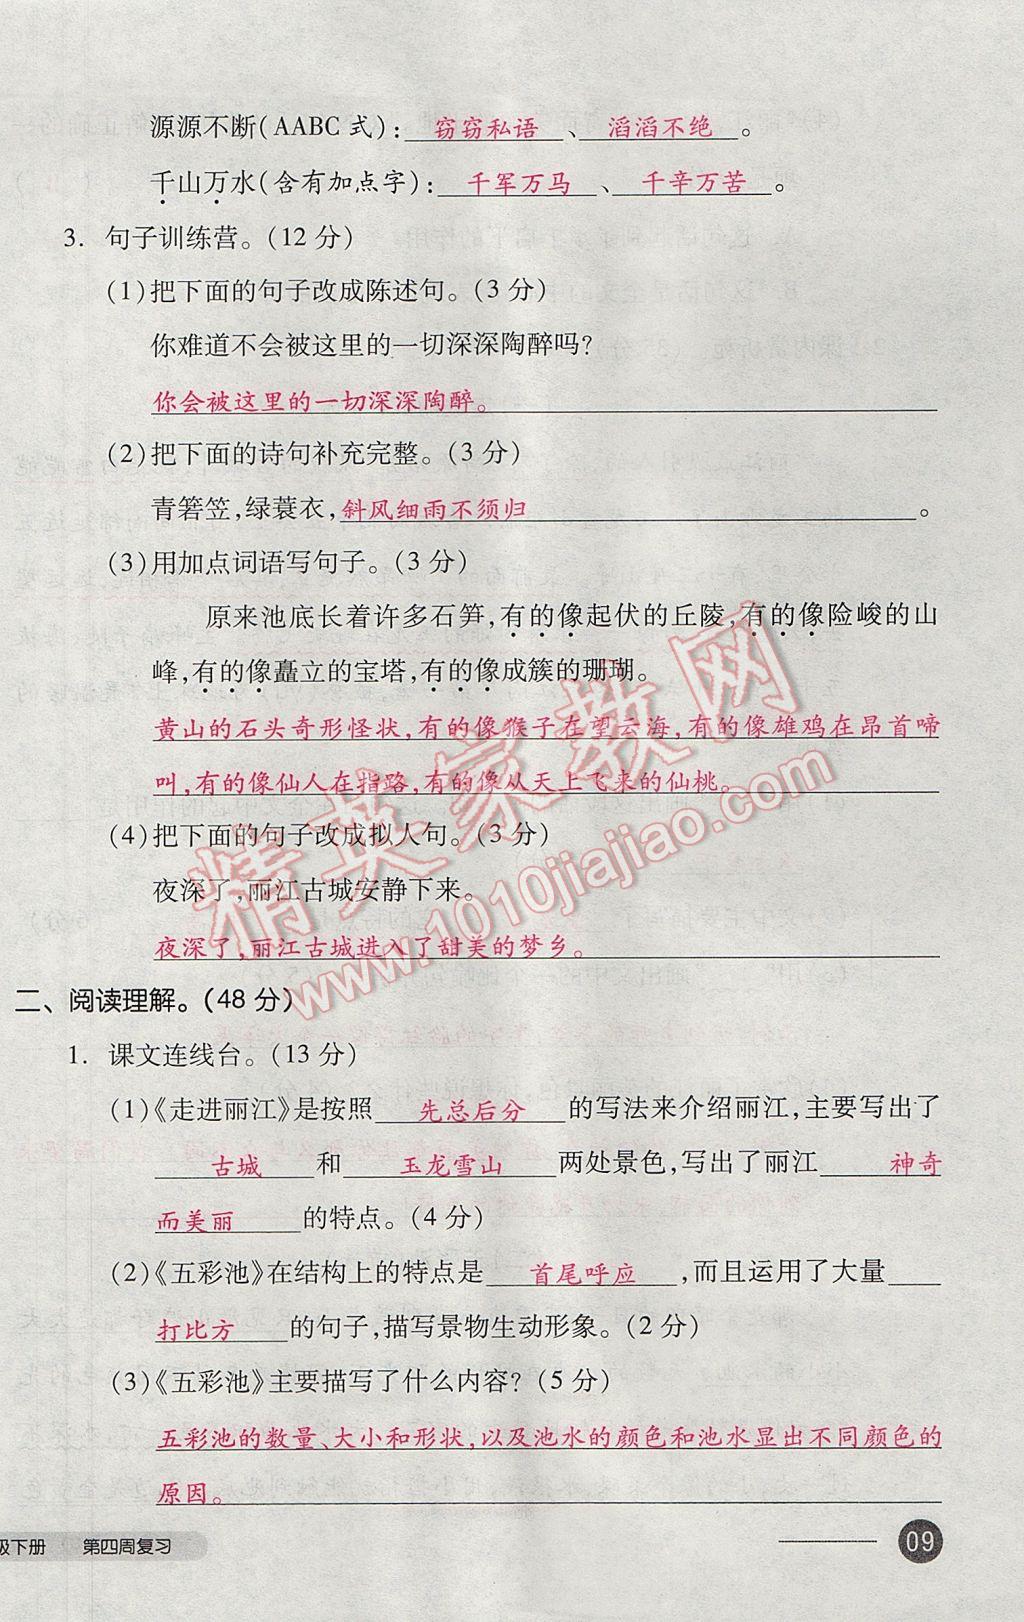 源源不断(AABC式):窃窃私语、滔滔不绝。
千山万水(含有加点字):千军万马、千辛万苦。
3. 句子训练营。(12分)
(1)把下面的句子改成陈述句。(3分)
你难道不会被这里的一切深深陶醉吗?
你会被这里的一切深深陶醉。
(2)把下面的诗句补充完整。(3分)
青箬笠,绿蓑衣,斜风细雨不须归。
(3)用加点词语写句子。(3分)
原来池底长着许多石笋,有的像起伏的丘陵,有的像险峻的山
峰,有的像矗立的宝塔,有的像成簇的珊瑚。
黄山的石头奇形怪状,有的像猴子在望云海,有的像雄鸡在昂首啼
叫,有的像仙人在指路,有的像从天上飞来的仙桃。
(4)把下面的句子改成拟人句。(3分)
夜深了,丽江古城安静下来。
夜深了,丽江古城进入了甜美的梦乡。
二、阅读理解。(48分)
1. 课文连线台。(13分)
(1)《走进丽江》是按照先总后分的写法来介绍丽江,主要写出了
古城和玉龙雪山两处景色,写出了丽江神奇
而美丽的特点。(4分)
(2)《五彩池》在结构上的特点是首尾呼应,而且运用了大量
打比方的句子,描写景物生动形象。(2分)
(3)《五彩池》主要描写了什么内容?(5分)
五彩池的数量、大小和形状,以及池水的颜色和池水显出不同颜色的
原因。
级下册 第四周复习 09
精英家教网
www.1010jiajiao.com